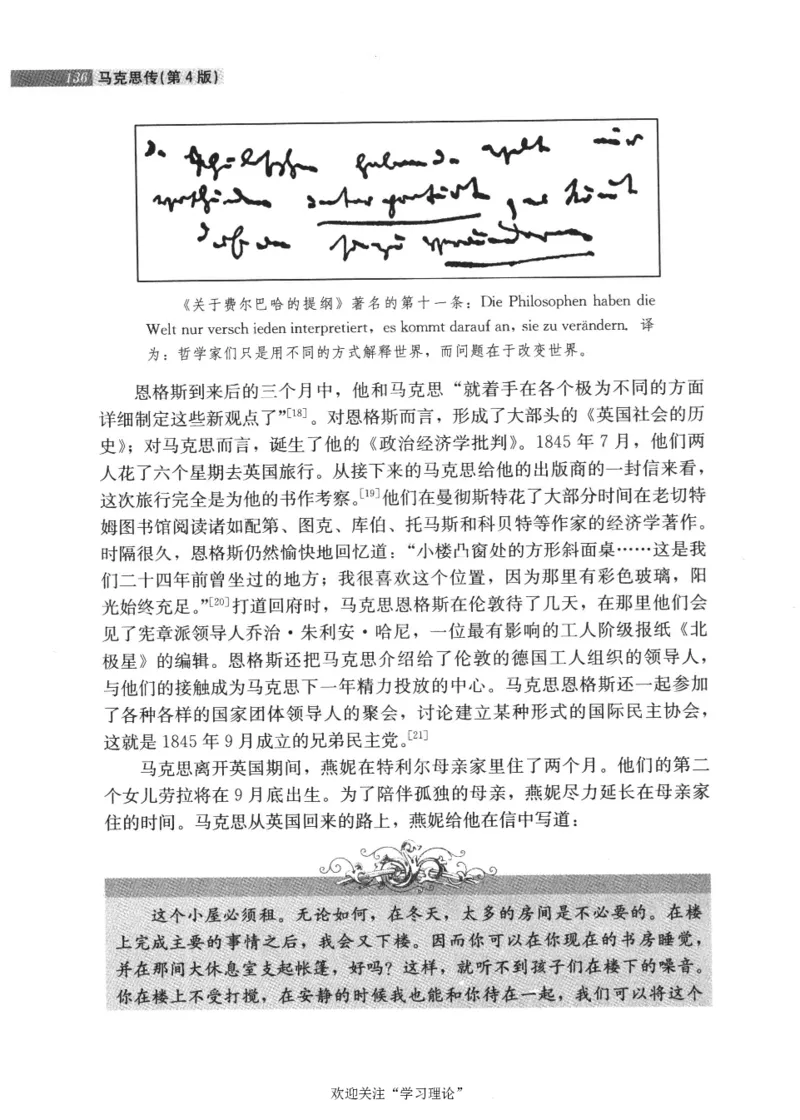 136 马克思传(第4版)
《关于费尔巴哈的提纲》著名的第十一条：Die Philosophen haben die
Welt nur versch ieden interpretiert，es kommt darauf an，sie zu verändern. 译
为：哲学家们只是用不同的方式解释世界，而问题在于改变世界。
恩格斯到来后的三个月中，他和马克思“就着手在各个极为不同的方面
详细制定这些新观点了”[18]。对恩格斯而言，形成了大部头的《英国社会的历
史》；对马克思而言，诞生了他的《政治经济学批判》。1845 年 7 月，他们两
人花了六个星期去英国旅行。从接下来的马克思给他的出版商的一封信来看，
这次旅行完全是为他的书作考察。[19]他们在曼彻斯特花了大部分时间在老切特
姆图书馆阅读诸如配第、图克、库伯、托马斯和科贝特等作家的经济学著作。
时隔很久，恩格斯仍然愉快地回忆道：“小楼凸窗处的方形斜面桌……这是我
们二十四年前曾坐过的地方；我很喜欢这个位置，因为那里有彩色玻璃，阳
光始终充足。”[20]打道回府时，马克思恩格斯在伦敦待了几天，在那里他们会
见了宪章派领导人乔治·朱利安·哈尼，一位最有影响的工人阶级报纸《北
极星》的编辑。恩格斯还把马克思介绍给了伦敦的德国工人组织的领导人，
与他们的接触成为马克思下一年精力投放的中心。马克思恩格斯还一起参加
了各种各样的国家团体领导人的聚会，讨论建立某种形式的国际民主协会，
这就是 1845 年 9 月成立的兄弟民主党。[21]
马克思离开英国期间，燕妮在特利尔母亲家里住了两个月。他们的第二
个女儿劳拉将在 9 月底出生。为了陪伴孤独的母亲，燕妮尽力延长在母亲家
住的时间。马克思从英国回来的路上，燕妮给他在信中写道：
这个小屋必须租。无论如何，在冬天，太多的房间是不必要的。在楼
上完成主要的事情之后，我会又下楼。因而你可以在你现在的书房睡觉，
并在那间大休息室支起帐篷，好吗？这样，就听不到孩子们在楼下的噪音。
你在楼上不受打搅，在安静的时候我也能和你待在一起，我们可以将这个
欢迎关注“学习理论”